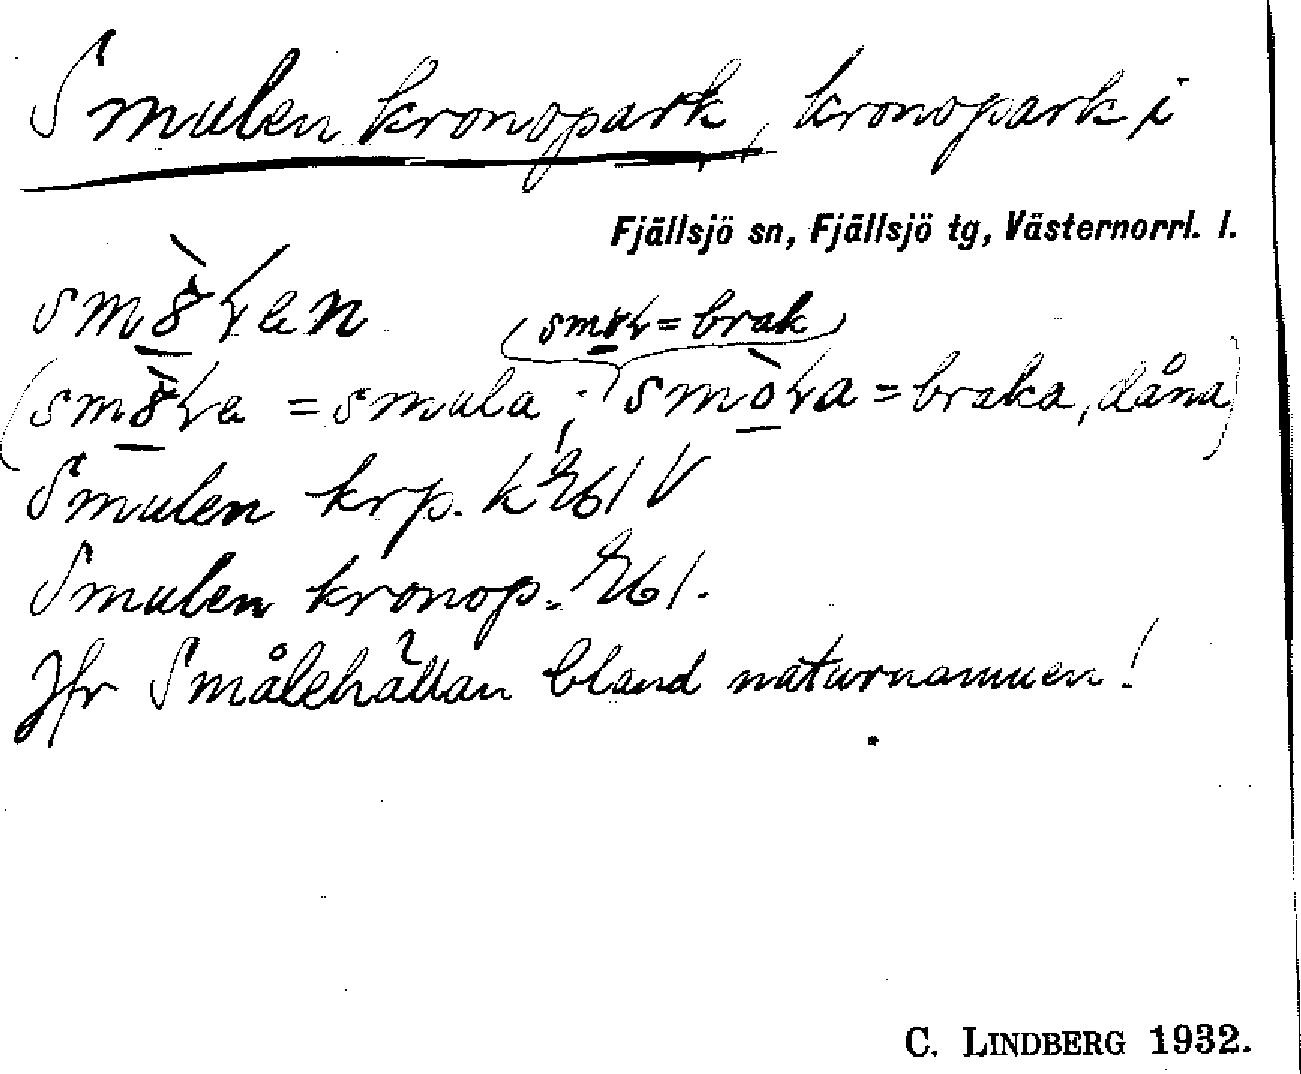 Smulen kronopark, kronopark i
Fjällsjö sn, Fjällsjö tg, Västernorrl. l.
(smoɽ = brak)
= smula; = braka, dåna)
Smulen krp. k 261 V
Smulen kronop. 261.
Jfr Smålehällan bland naturnamnen!
C. LINDBERG 1932.